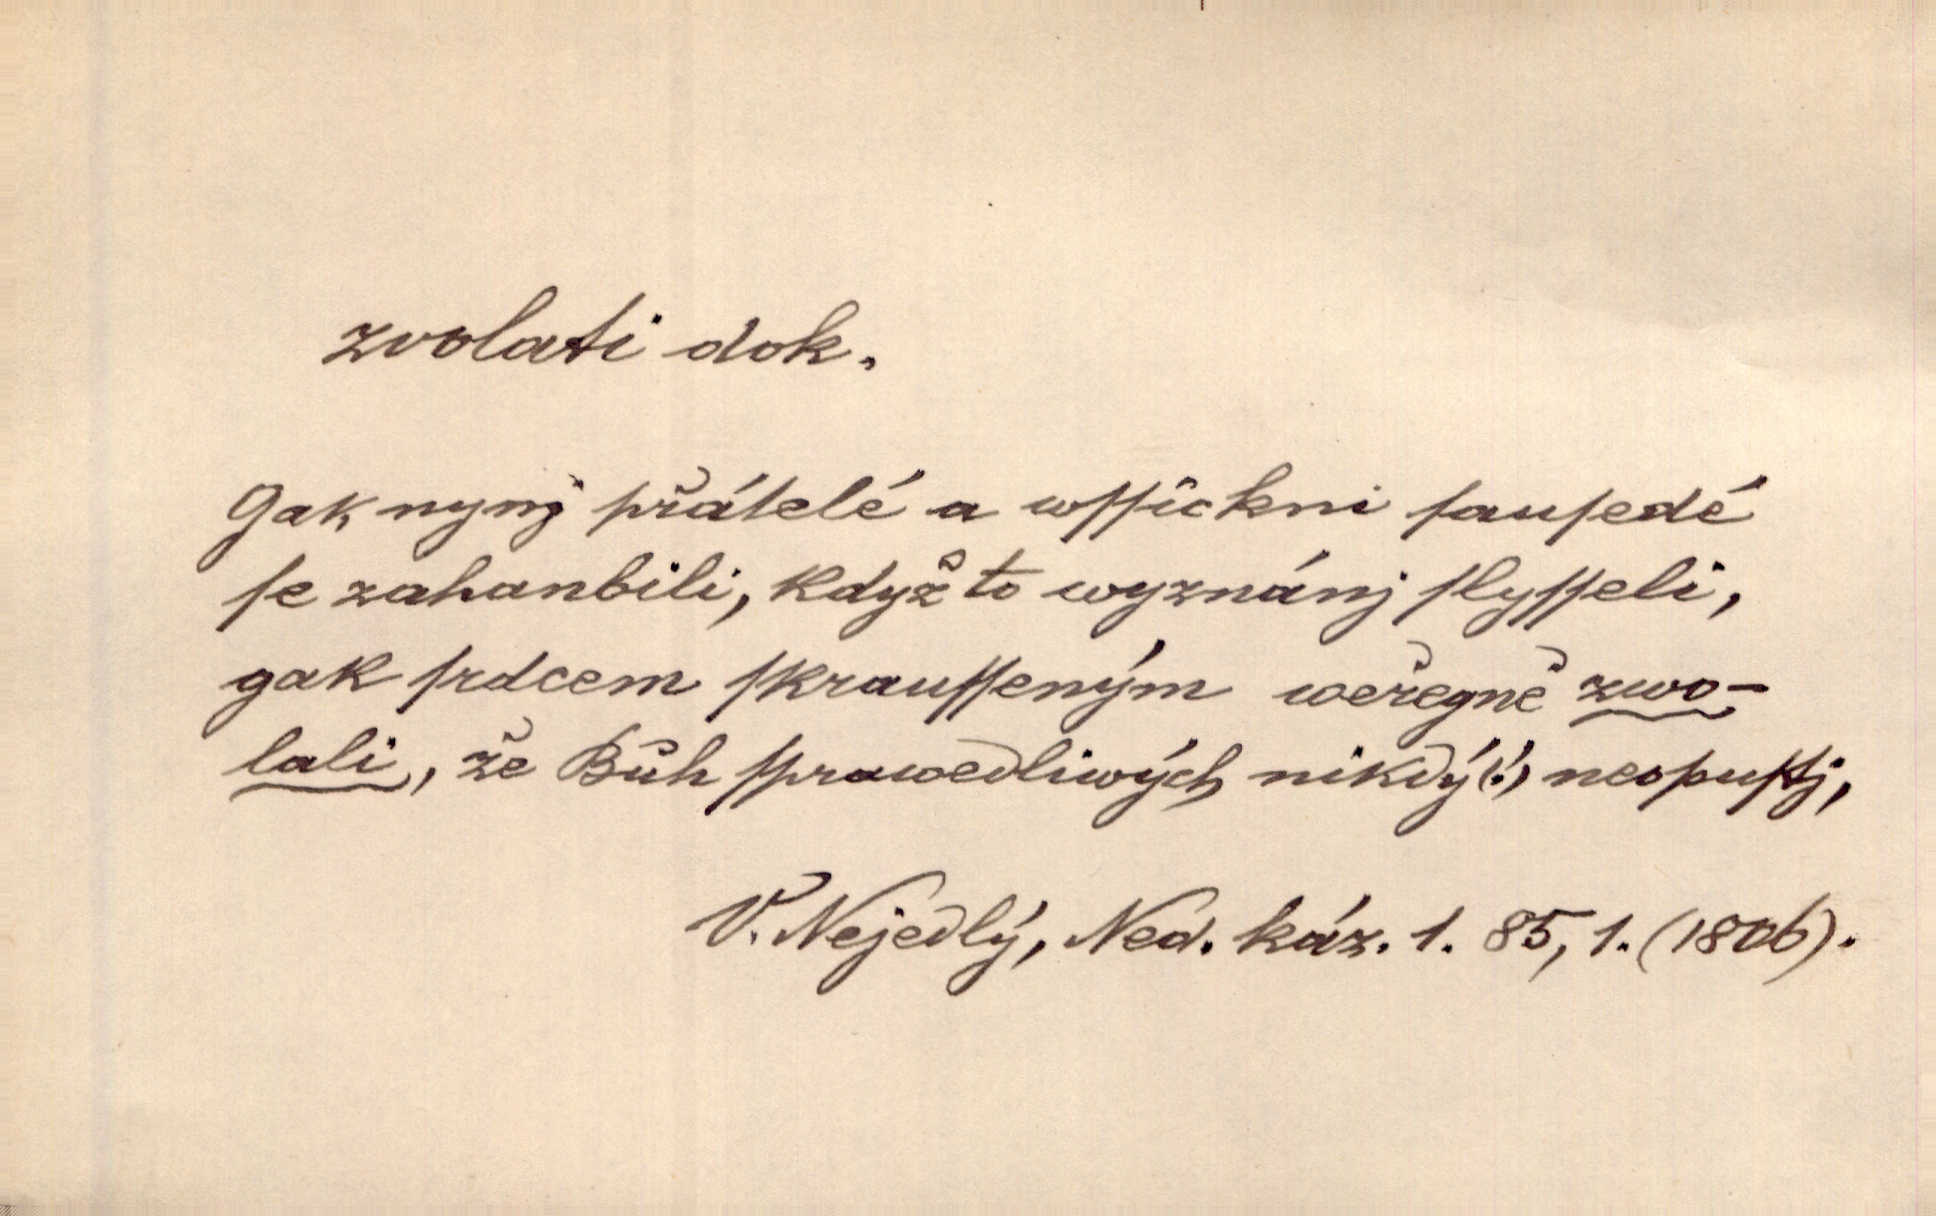 zvolati dok.
Gak nynj přátelé a wſſickni ſauſedé
ſe zahanbili, když to wyznánj ſlyſſeli,
gak ſrdcem ſkrauſſeným weřegně zwo-
lali, že Bůh ſprawedliwých nikdý(!) neopuſtj,
V. Nejedlý, Ned. káz. 1. 85, 1. (1806).